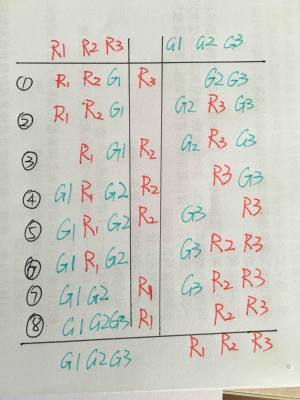 R1 R2 R3 G1 G2 G3
① R1 R2 G1 R3 G2 G3
② R1 R2 G1 G2 R3 G3
③ R1 G1 R2 G2 R3 G3
④ G1 R1 G2 R2 R3 G3
⑤ G1 R1 G2 R2 G3 R3
⑥ G1 R1 G2 G3 R2 R3
⑦ G1 G2 R1 G3 R2 R3
⑧ G1 G2 G3 R1 R2 R3
G1 G2 G3 R1 R2 R3